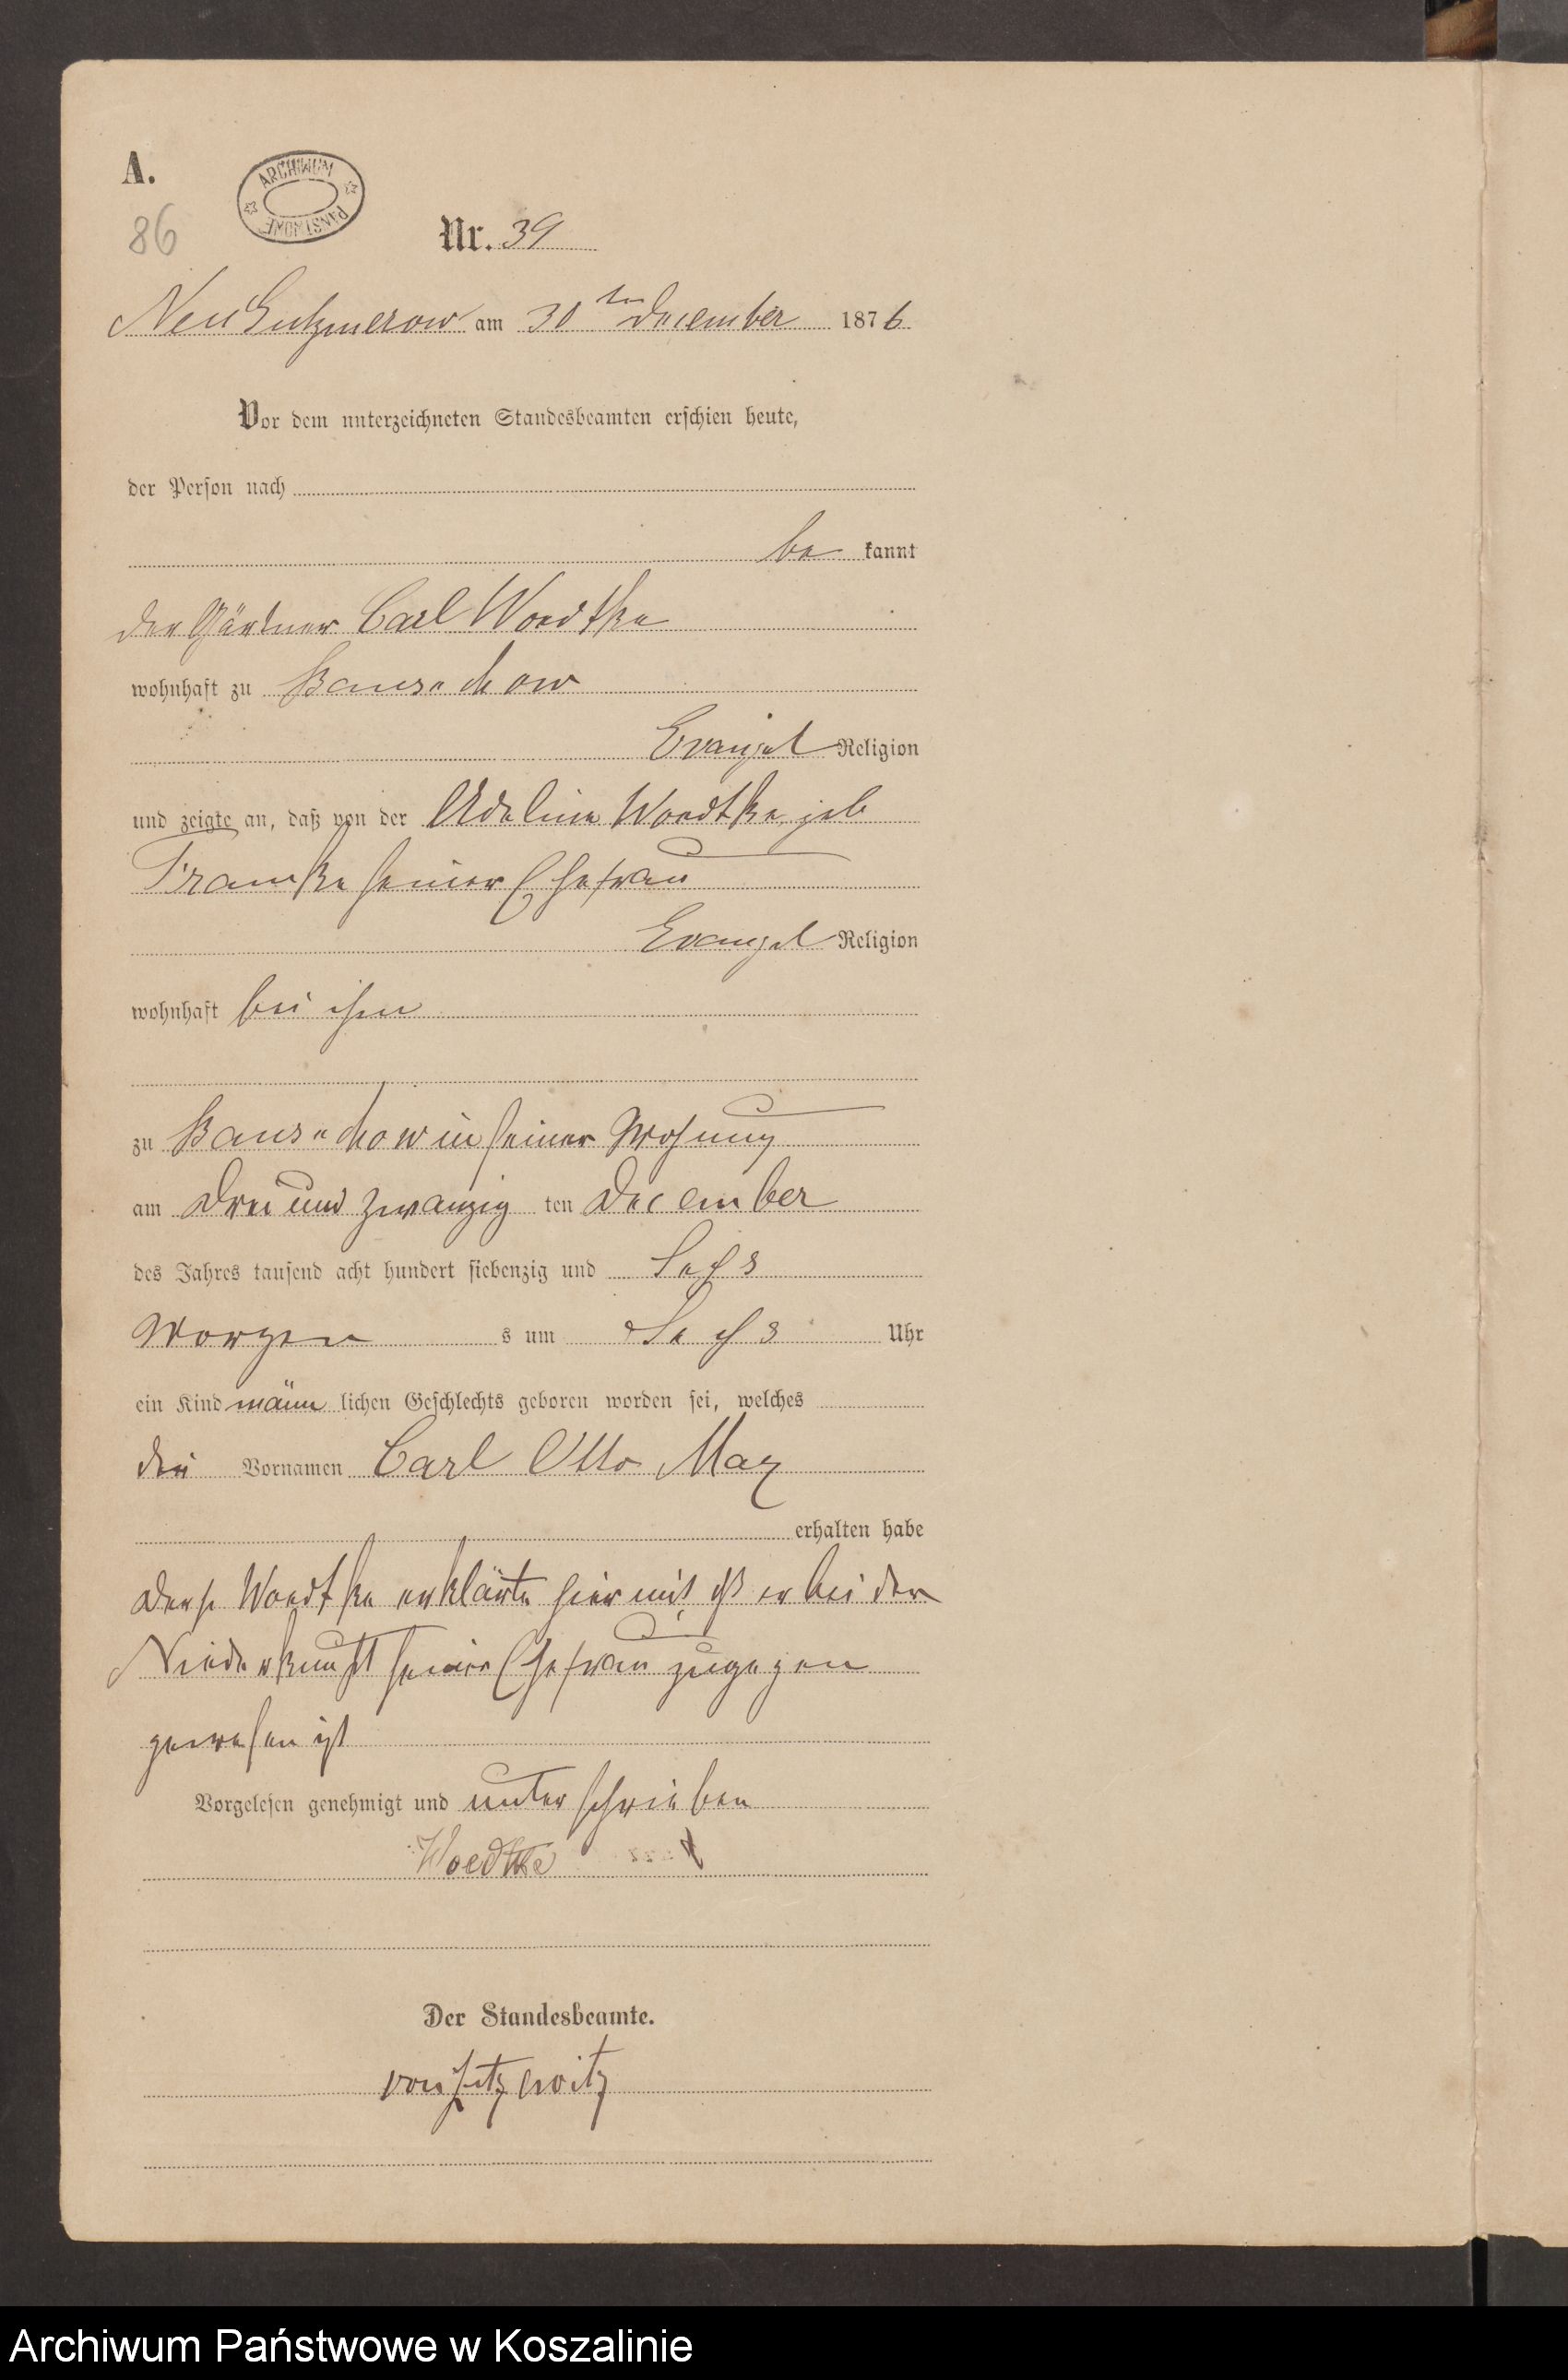 A.
ARCHIWUM PAŃSTWOWE
86
Nr. 39
Neu Gutzmerow am 30ten December 1876
Vor dem unterzeichneten Standesbeamten erschien heute,
der Person nach
be kannt
der Gärtner Carl Woedtke
wohnhaft zu
Evangel Religion
und zeigte an, daß von der Adeline Woedtke geb
Framke seiner Ehefrau
Evangel Religion
wohnhaft bei ihm
zu in seiner Wohnung
am Drei und zwanzig ten December
des Jahres tausend acht hundert siebenzig und Sechs
Morgen s um Sechs Uhr
ein Kind männ lichen Geschlechts geboren worden sei, welches
die Vornamen Carl Otto Max
erhalten habe
Woedtke erklärte hiermit, er bei der
Niederkunft seiner Ehefrau zugegen
gewesen ist
Vorgelesen genehmigt und unterschrieben
Woedtke
Der Standesbeamte.
von Zitzewitz
Archiwum Państwowe w Koszalinie